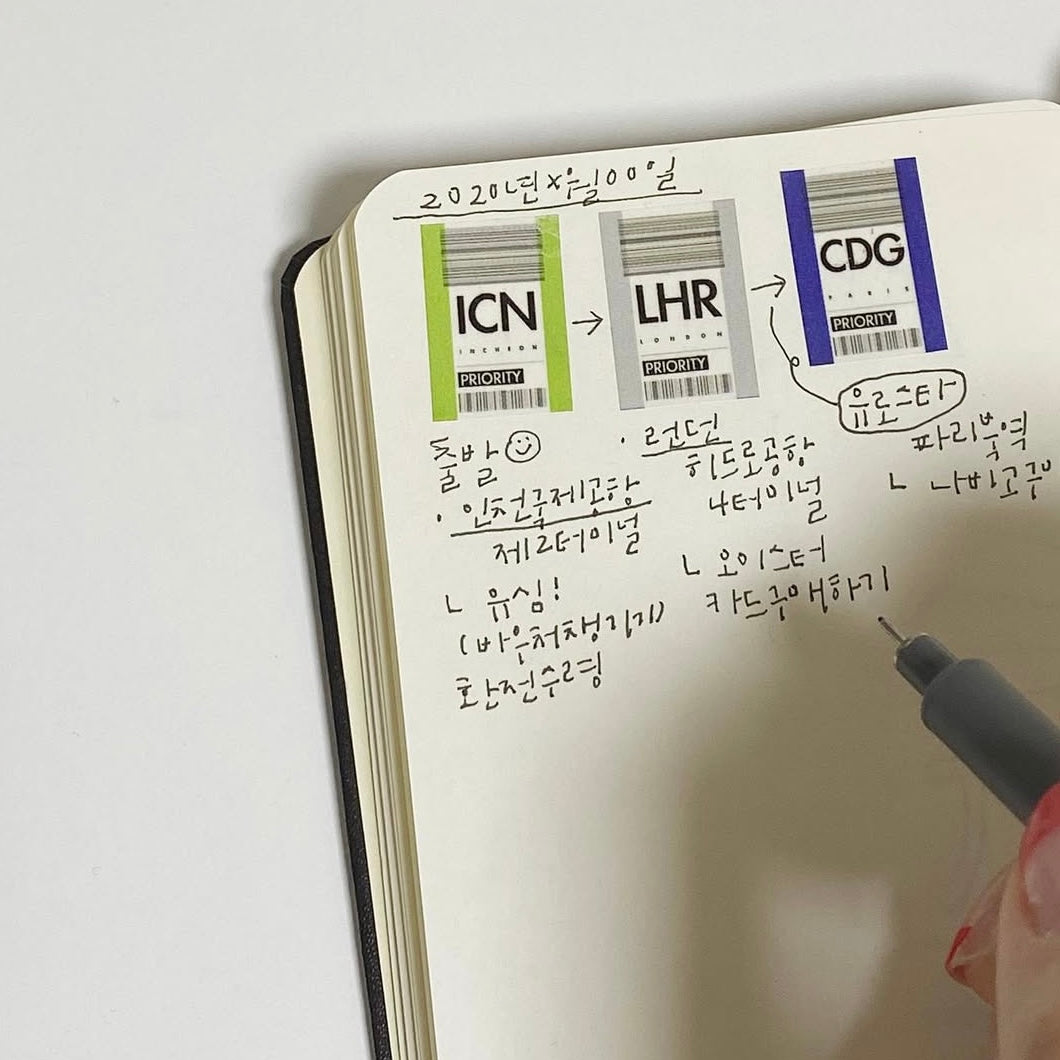 2020년 x월 00일
ICN
INCHEON
PRIORITY
LHR
LONDON
PRIORITY
CDG
PARIS
PRIORITY
유로스타
출발
· 인천국제공항
제2터미널
ㄴ 유심!
(바우처챙기기)
환전수령
· 런던
히드로공항
4터미널
ㄴ 오이스터
카드구매하기
파리북역
ㄴ 나비고